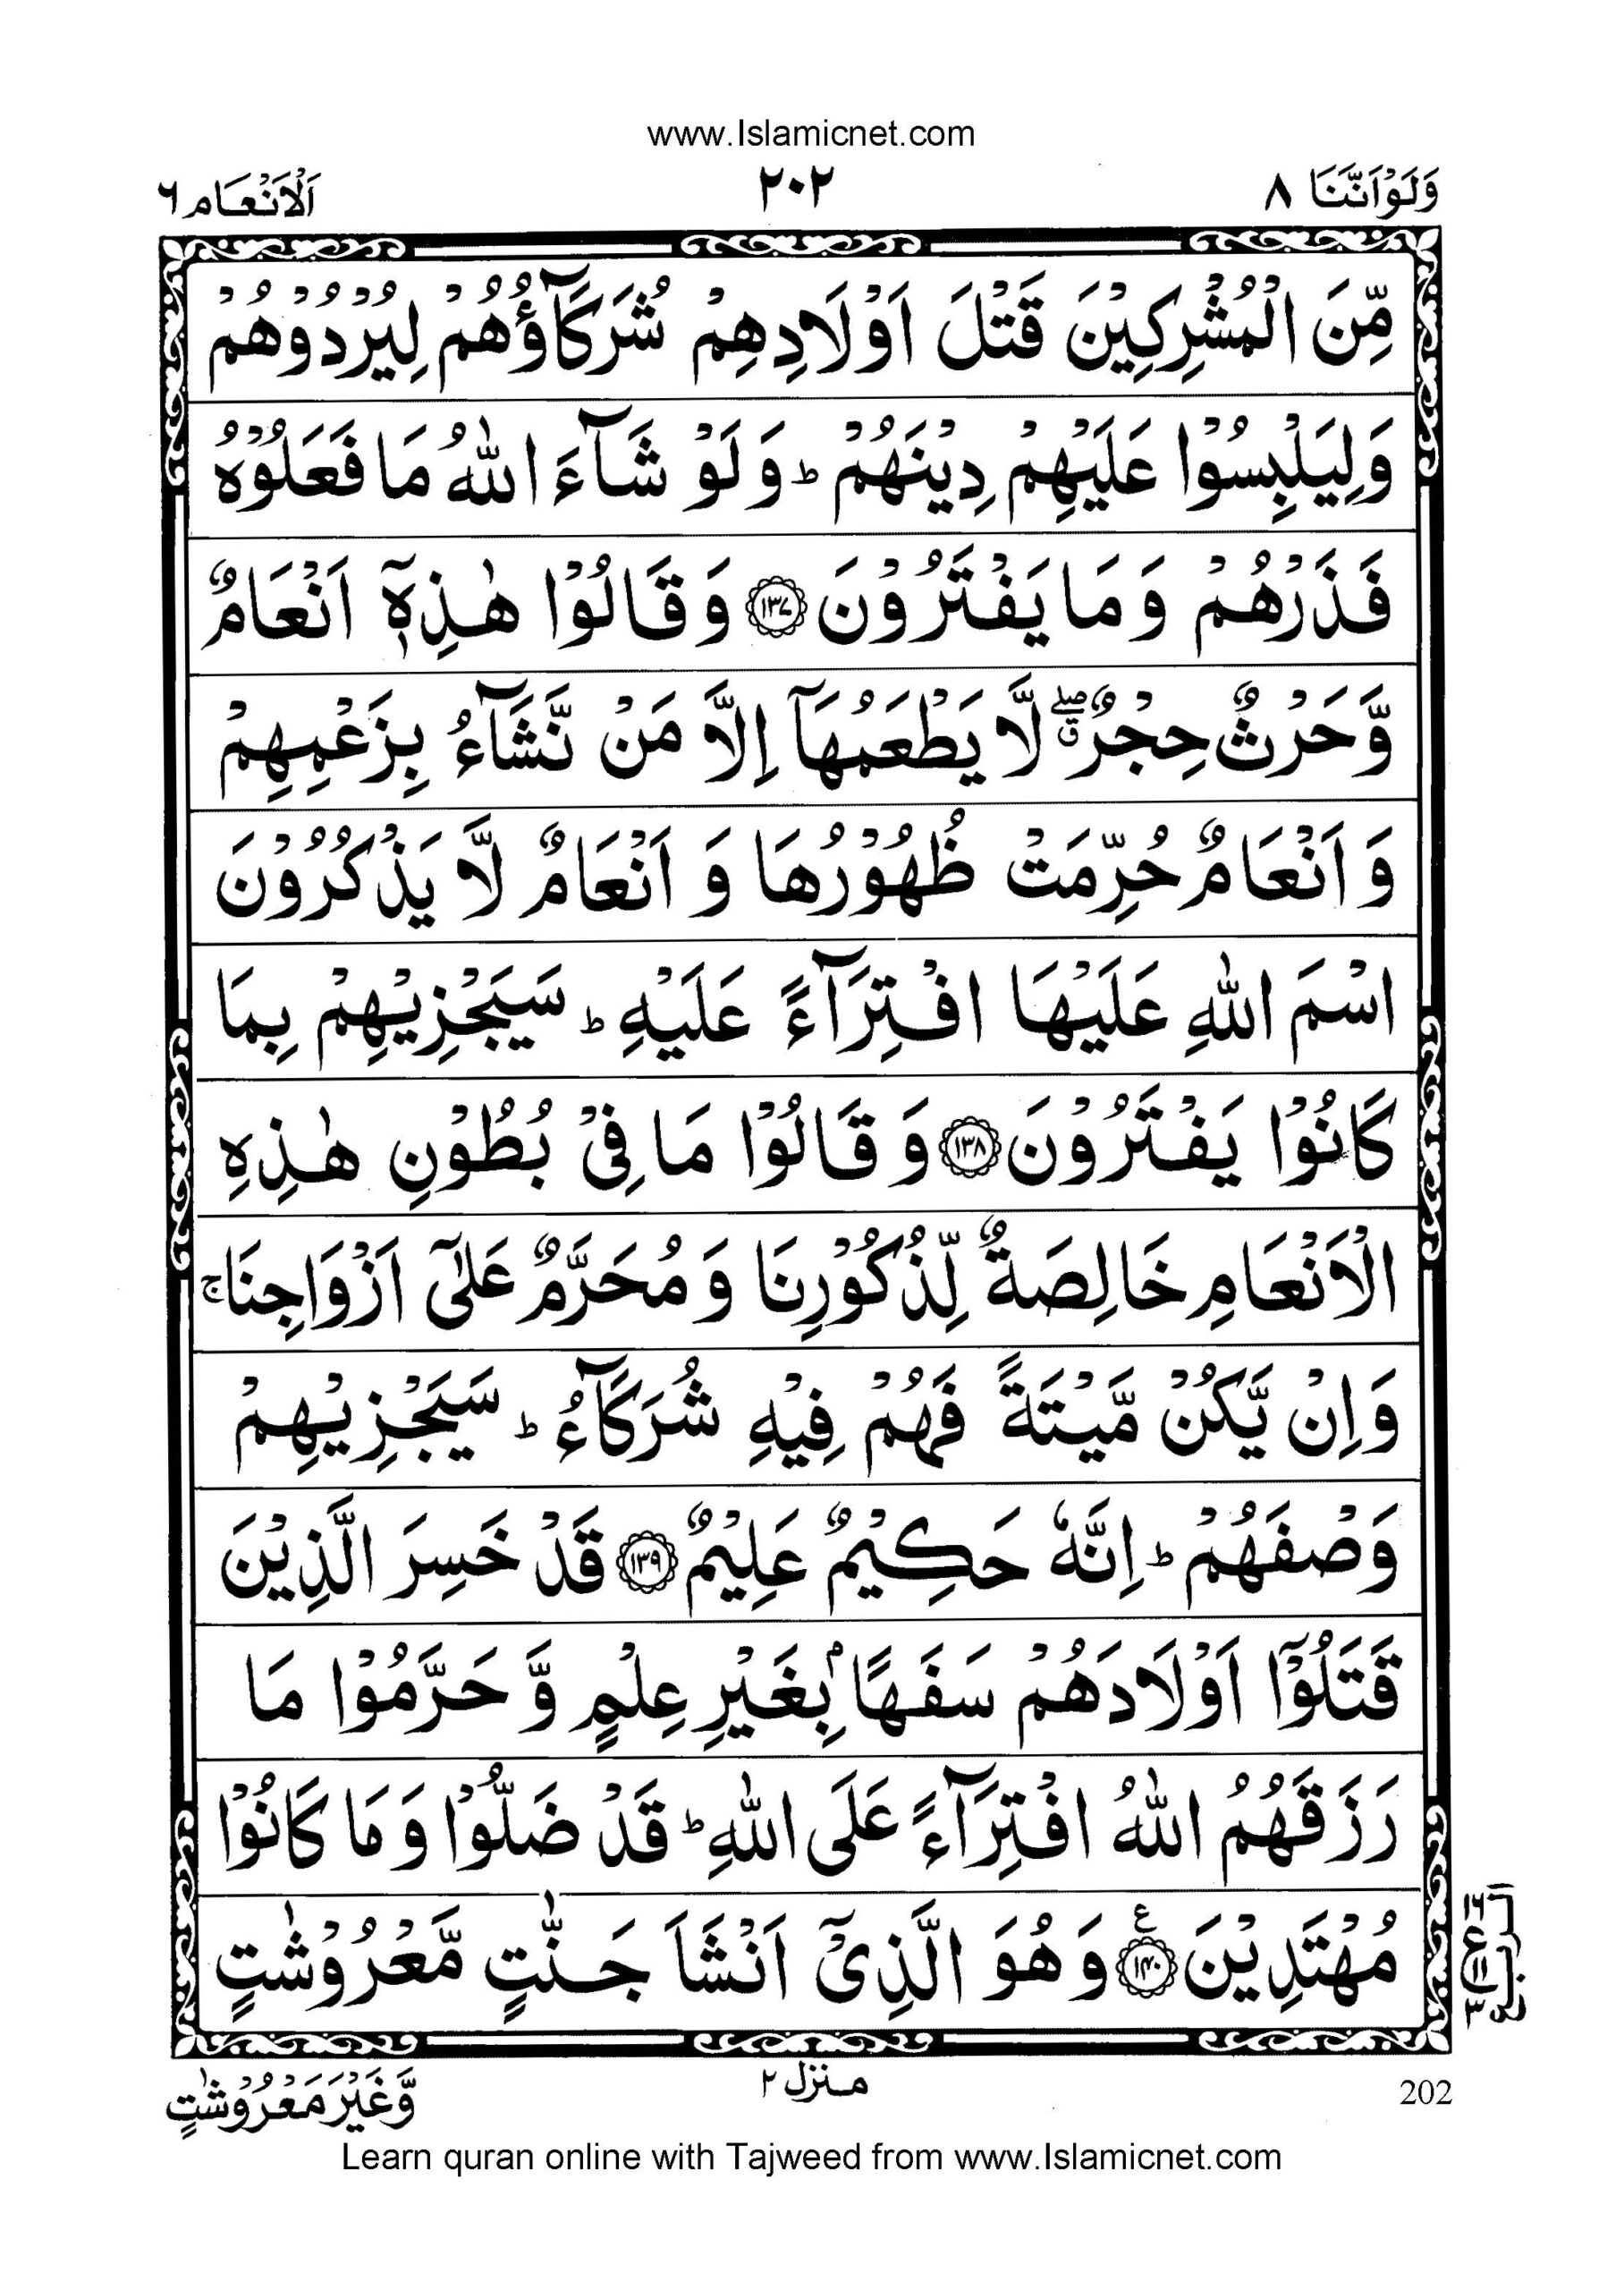 www.Islamicnet.com
وَلَوْاَنَّنَا ٨
٢٠٢
اَلْاَنْعَام ٦
مِّنَ الْمُشْرِكِيْنَ قَتْلَ اَوْلَادِهِمْ شُرَكَآؤُهُمْ لِيُرْدُوْهُمْ
وَلِيَلْبِسُوْا عَلَيْهِمْ دِيْنَهُمْ ؕ وَلَوْ شَآءَ اللّٰهُ مَا فَعَلُوْهُ
فَذَرْهُمْ وَمَا يَفْتَرُوْنَ ﴿١٣٧﴾ وَقَالُوْا هٰذِهٖٓ اَنْعَامٌ
وَّحَرْثٌ حِجْرٌ ۖق لَّا يَطْعَمُهَآ اِلَّا مَنْ نَّشَآءُ بِزَعْمِهِمْ
وَاَنْعَامٌ حُرِّمَتْ ظُهُوْرُهَا وَاَنْعَامٌ لَّا يَذْكُرُوْنَ
اسْمَ اللّٰهِ عَلَيْهَا افْتِرَآءً عَلَيْهِ ؕ سَيَجْزِيْهِمْ بِمَا
كَانُوْا يَفْتَرُوْنَ ﴿١٣٨﴾ وَقَالُوْا مَا فِيْ بُطُوْنِ هٰذِهِ
الْاَنْعَامِ خَالِصَةٌ لِّذُكُوْرِنَا وَمُحَرَّمٌ عَلٰٓى اَزْوَاجِنَا ۚ
وَاِنْ يَّكُنْ مَّيْتَةً فَهُمْ فِيْهِ شُرَكَآءُ ؕ سَيَجْزِيْهِمْ
وَصْفَهُمْ ؕ اِنَّهٗ حَكِيْمٌ عَلِيْمٌ ﴿١٣٩﴾ قَدْ خَسِرَ الَّذِيْنَ
قَتَلُوْٓا اَوْلَادَهُمْ سَفَهًاۢ بِغَيْرِ عِلْمٍ وَّحَرَّمُوْا مَا
رَزَقَهُمُ اللّٰهُ افْتِرَآءً عَلَى اللّٰهِ ؕ قَدْ ضَلُّوْا وَمَا كَانُوْا
مُهْتَدِيْنَ ﴿١٤٠﴾ ع وَهُوَ الَّذِيْٓ اَنْشَاَ جَنّٰتٍ مَّعْرُوْشٰتٍ
الربع
ع
وَّغَيْرَ مَعْرُوْشٰتٍ
منزل ٢
202
Learn quran online with Tajweed from www.Islamicnet.com